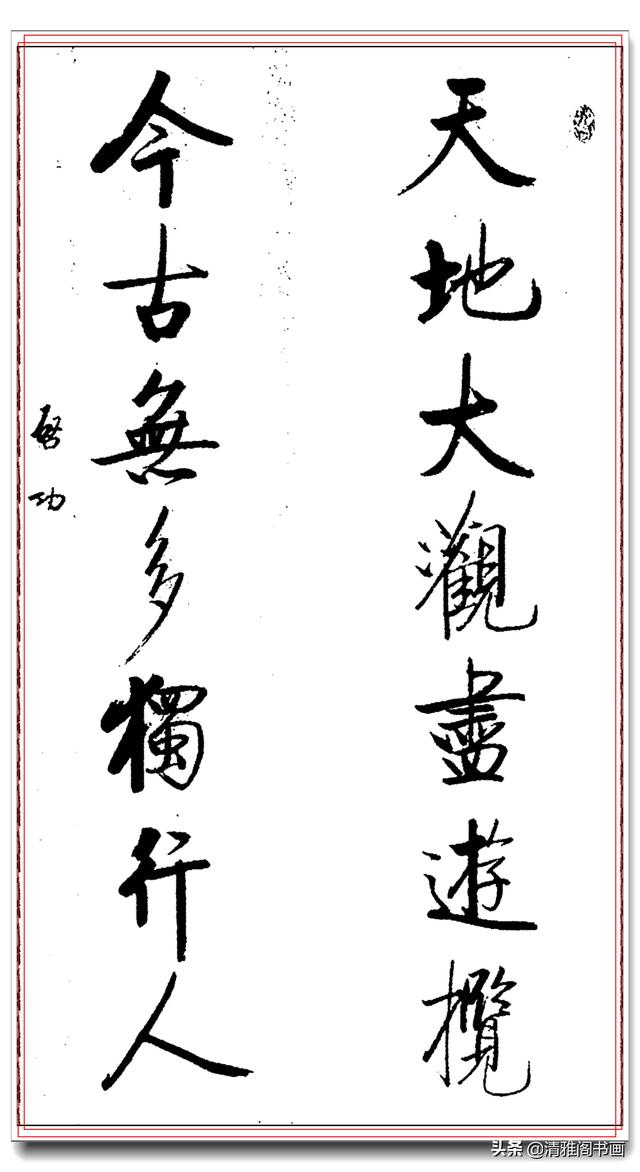 天地大觀盡遊攬
今古無多獨行人
啓功
头条 @清雅阁书画